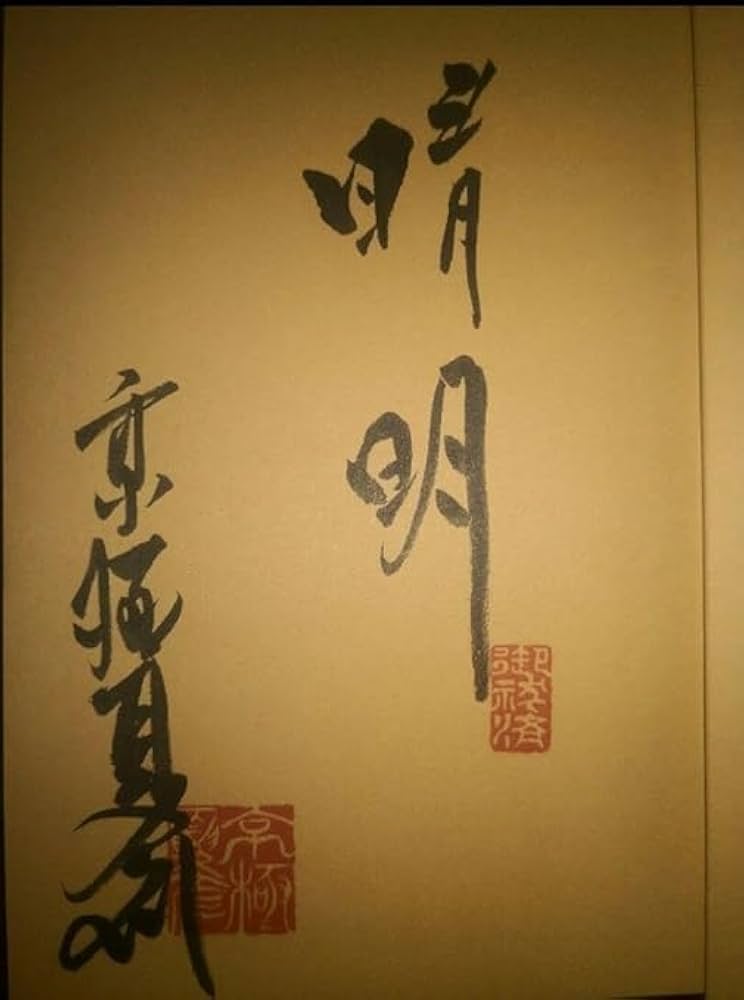 晴明
御祓済
京極夏彦
京極
夏彦